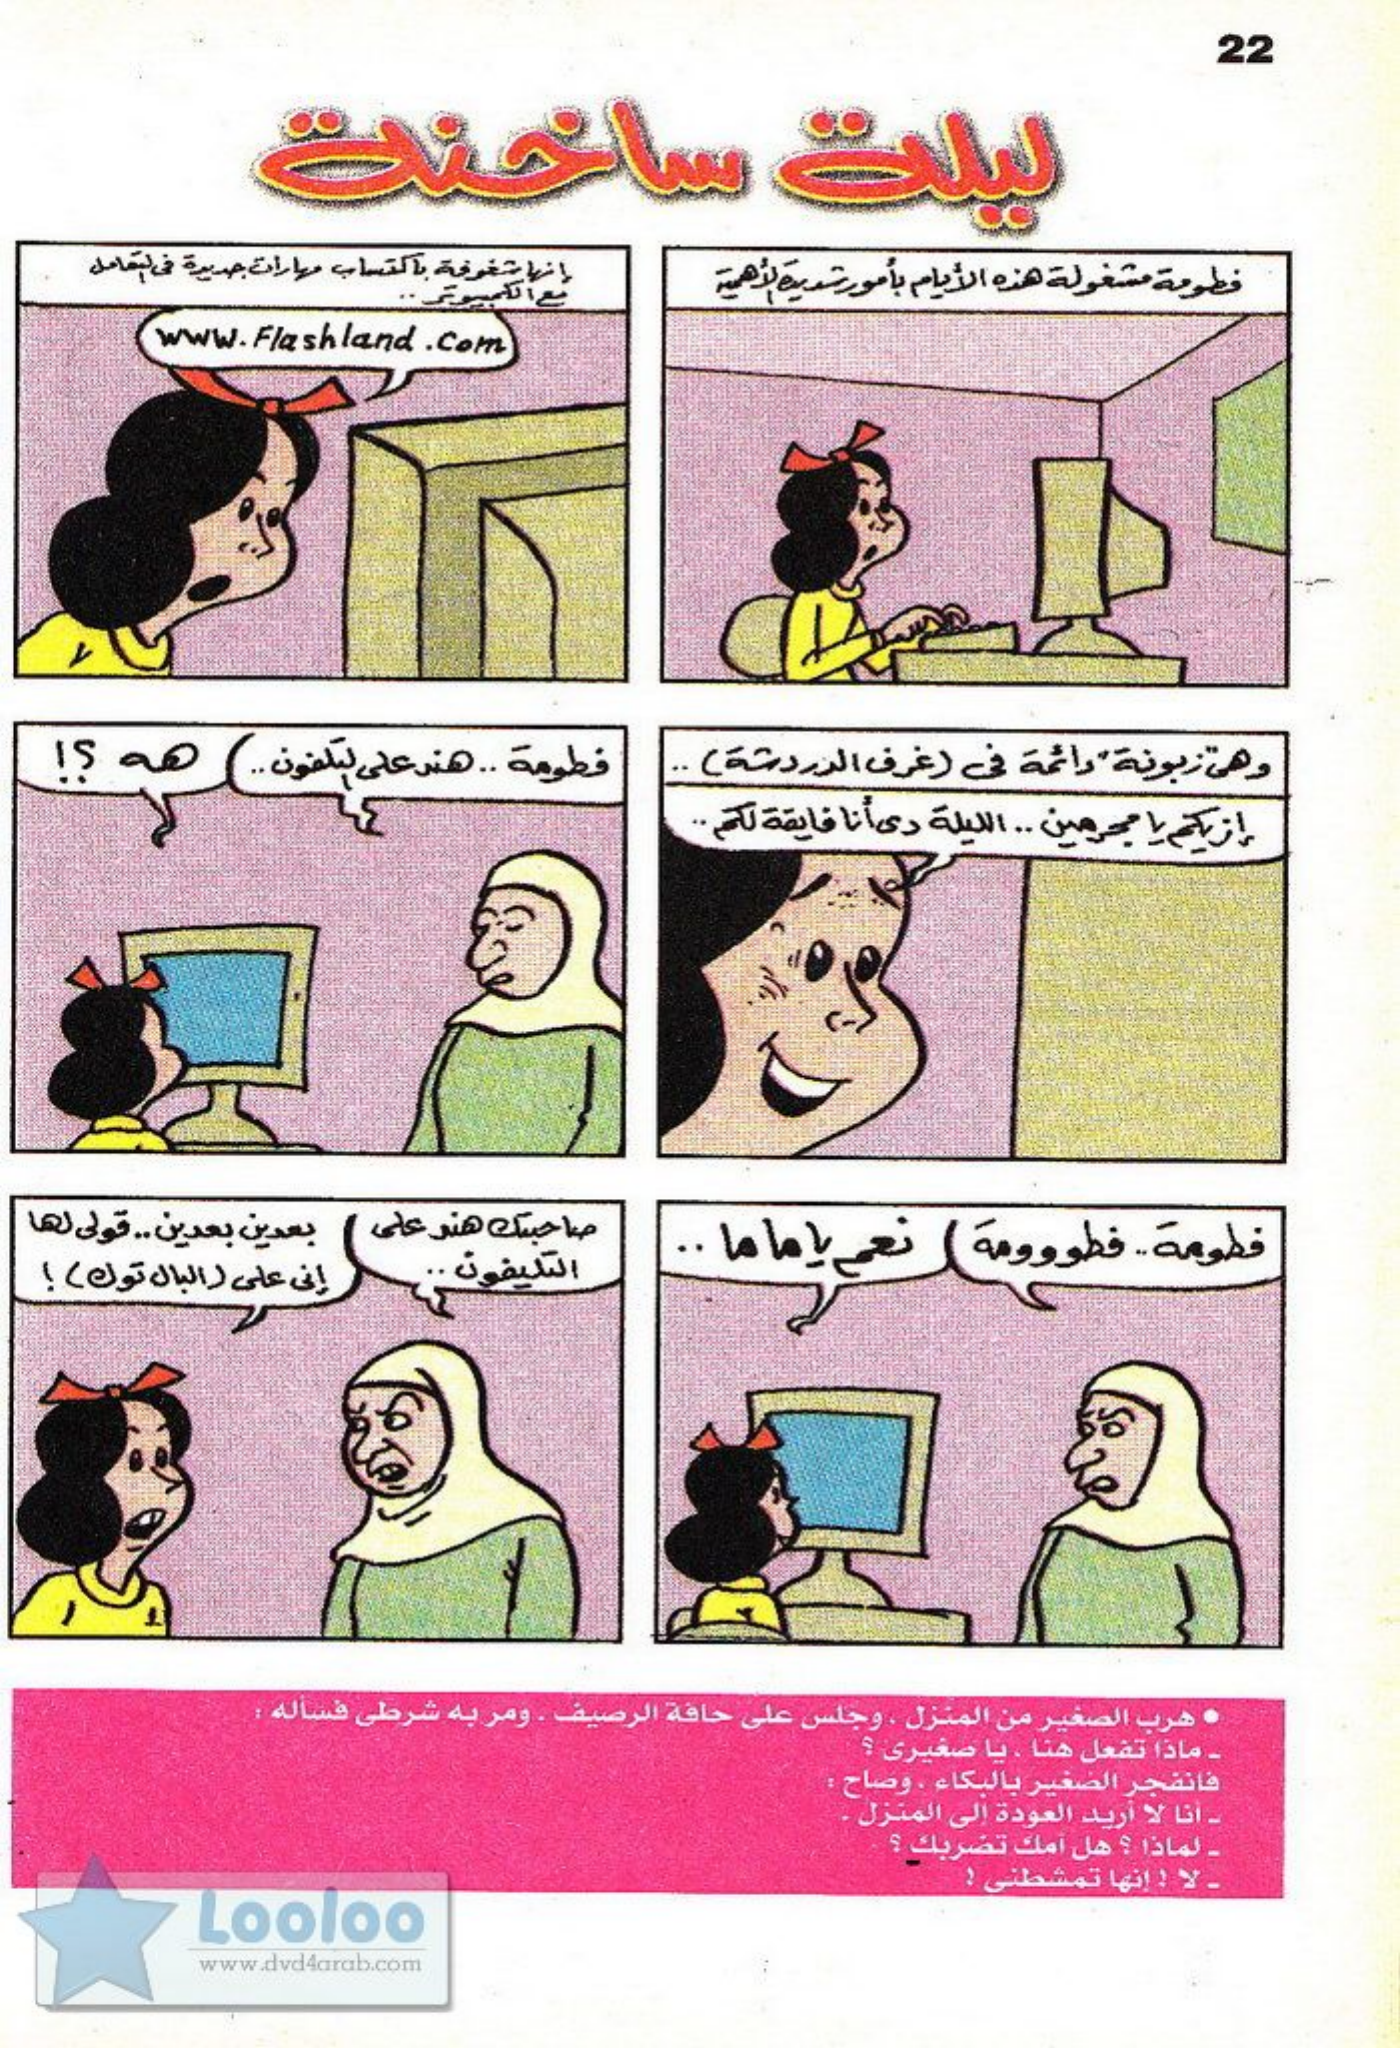 22
ليلة ساخنة
فطومة مشغولة هذه الأيام بأمور شديدة الأهمية
إنها شغوفة باكتساب مهارات جديدة فى التعامل
مع الكمبيوتر ..
www.Flashland.com
وهى "زبونة" دائمة فى (غرف الدردشة) ..
إزيكم يا مجرمين .. الليلة دى أنا فايقة لكم ..
فطومة .. هند على التلفون ..
هه ؟!
فطومة .. فطوووومة
نعم يا ماما ..
صاحبتك هند على
التليفون ..
بعدين بعدين .. قولى لها
إنى على (البال توك) !
● هرب الصغير من المنزل ، وجلس على حافة الرصيف ، ومر به شرطى فسأله :
ـ ماذا تفعل هنا ، يا صغيرى ؟
فانفجر الصغير بالبكاء ، وصاح :
ـ أنا لا أريد العودة إلى المنزل .
ـ لماذا ؟ هل أمك تضربك ؟
ـ لا ! إنها تمشطنى !
Looloo
www.dvd4arab.com